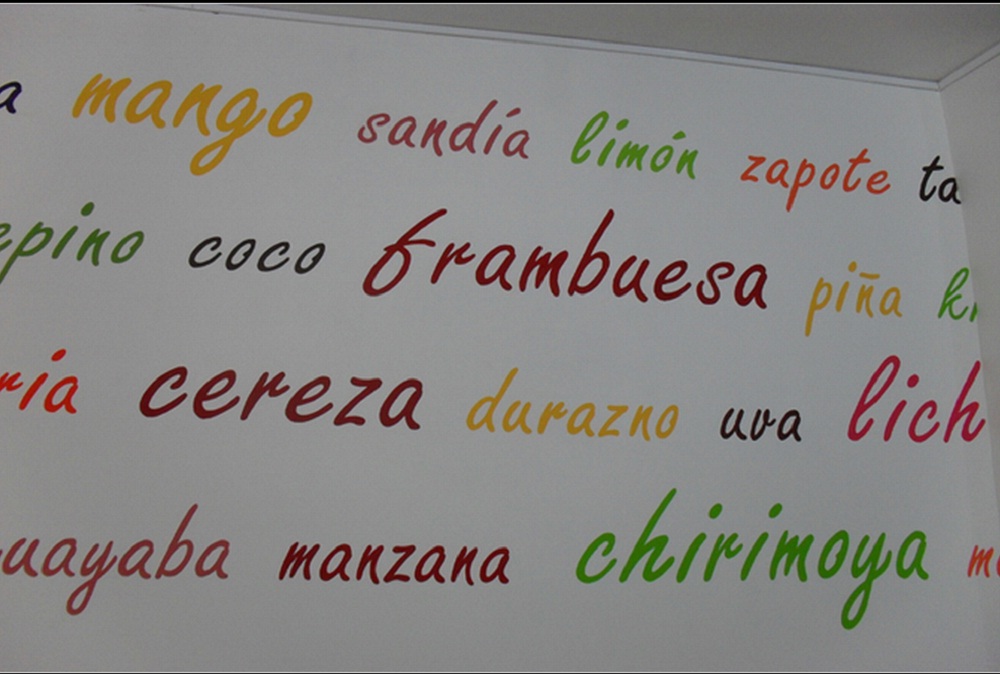 a mango sandía limón zapote ta
epino coco frambuesa piña ki
ria cereza durazno uva lich
uayaba manzana chirimoya m